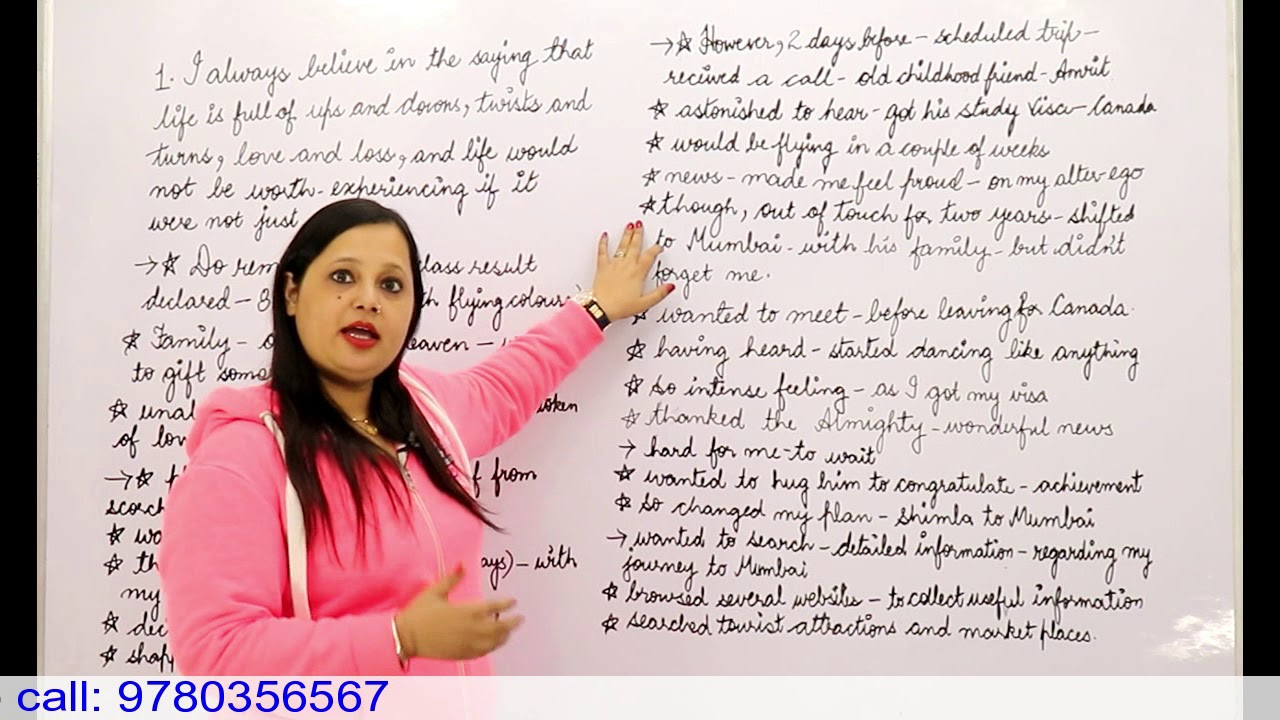 1. I always believe in the saying that
life is full of ups and downs, twists and
turns, love and loss, and life would
not be worth-experiencing if it
were not just
→☆ Do class result
declared – 8 flying colours
☆ Family – – 
to gift
☆
of
→☆ from
☆
☆ – with
my
☆
☆
→☆ However, 2 days before – scheduled trip –
received a call – old childhood friend – Amrit
☆ astonished to hear – got his study visa – Canada
☆ would be flying in a couple of weeks
☆ news – made me feel proud – on my alter-ego
☆ though, out of touch for two years – shifted
to Mumbai – with his family – but didn't
forget me.
☆ wanted to meet – before leaving for Canada.
☆ having heard – started dancing like anything
☆ so intense feeling – as I got my visa
☆ thanked the Almighty – wonderful news
→ hard for me – to wait
☆ wanted to hug him to congratulate – achievement
☆ so changed my plan – Shimla to Mumbai
→ wanted to search – detailed information – regarding my
journey to Mumbai
☆ browsed several websites – to collect useful information
☆ searched tourist attractions and market places.
call: 9780356567